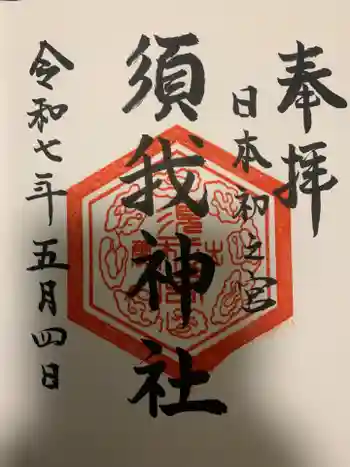 奉拝
日本初之宮
須我神社
令和七年五月四日